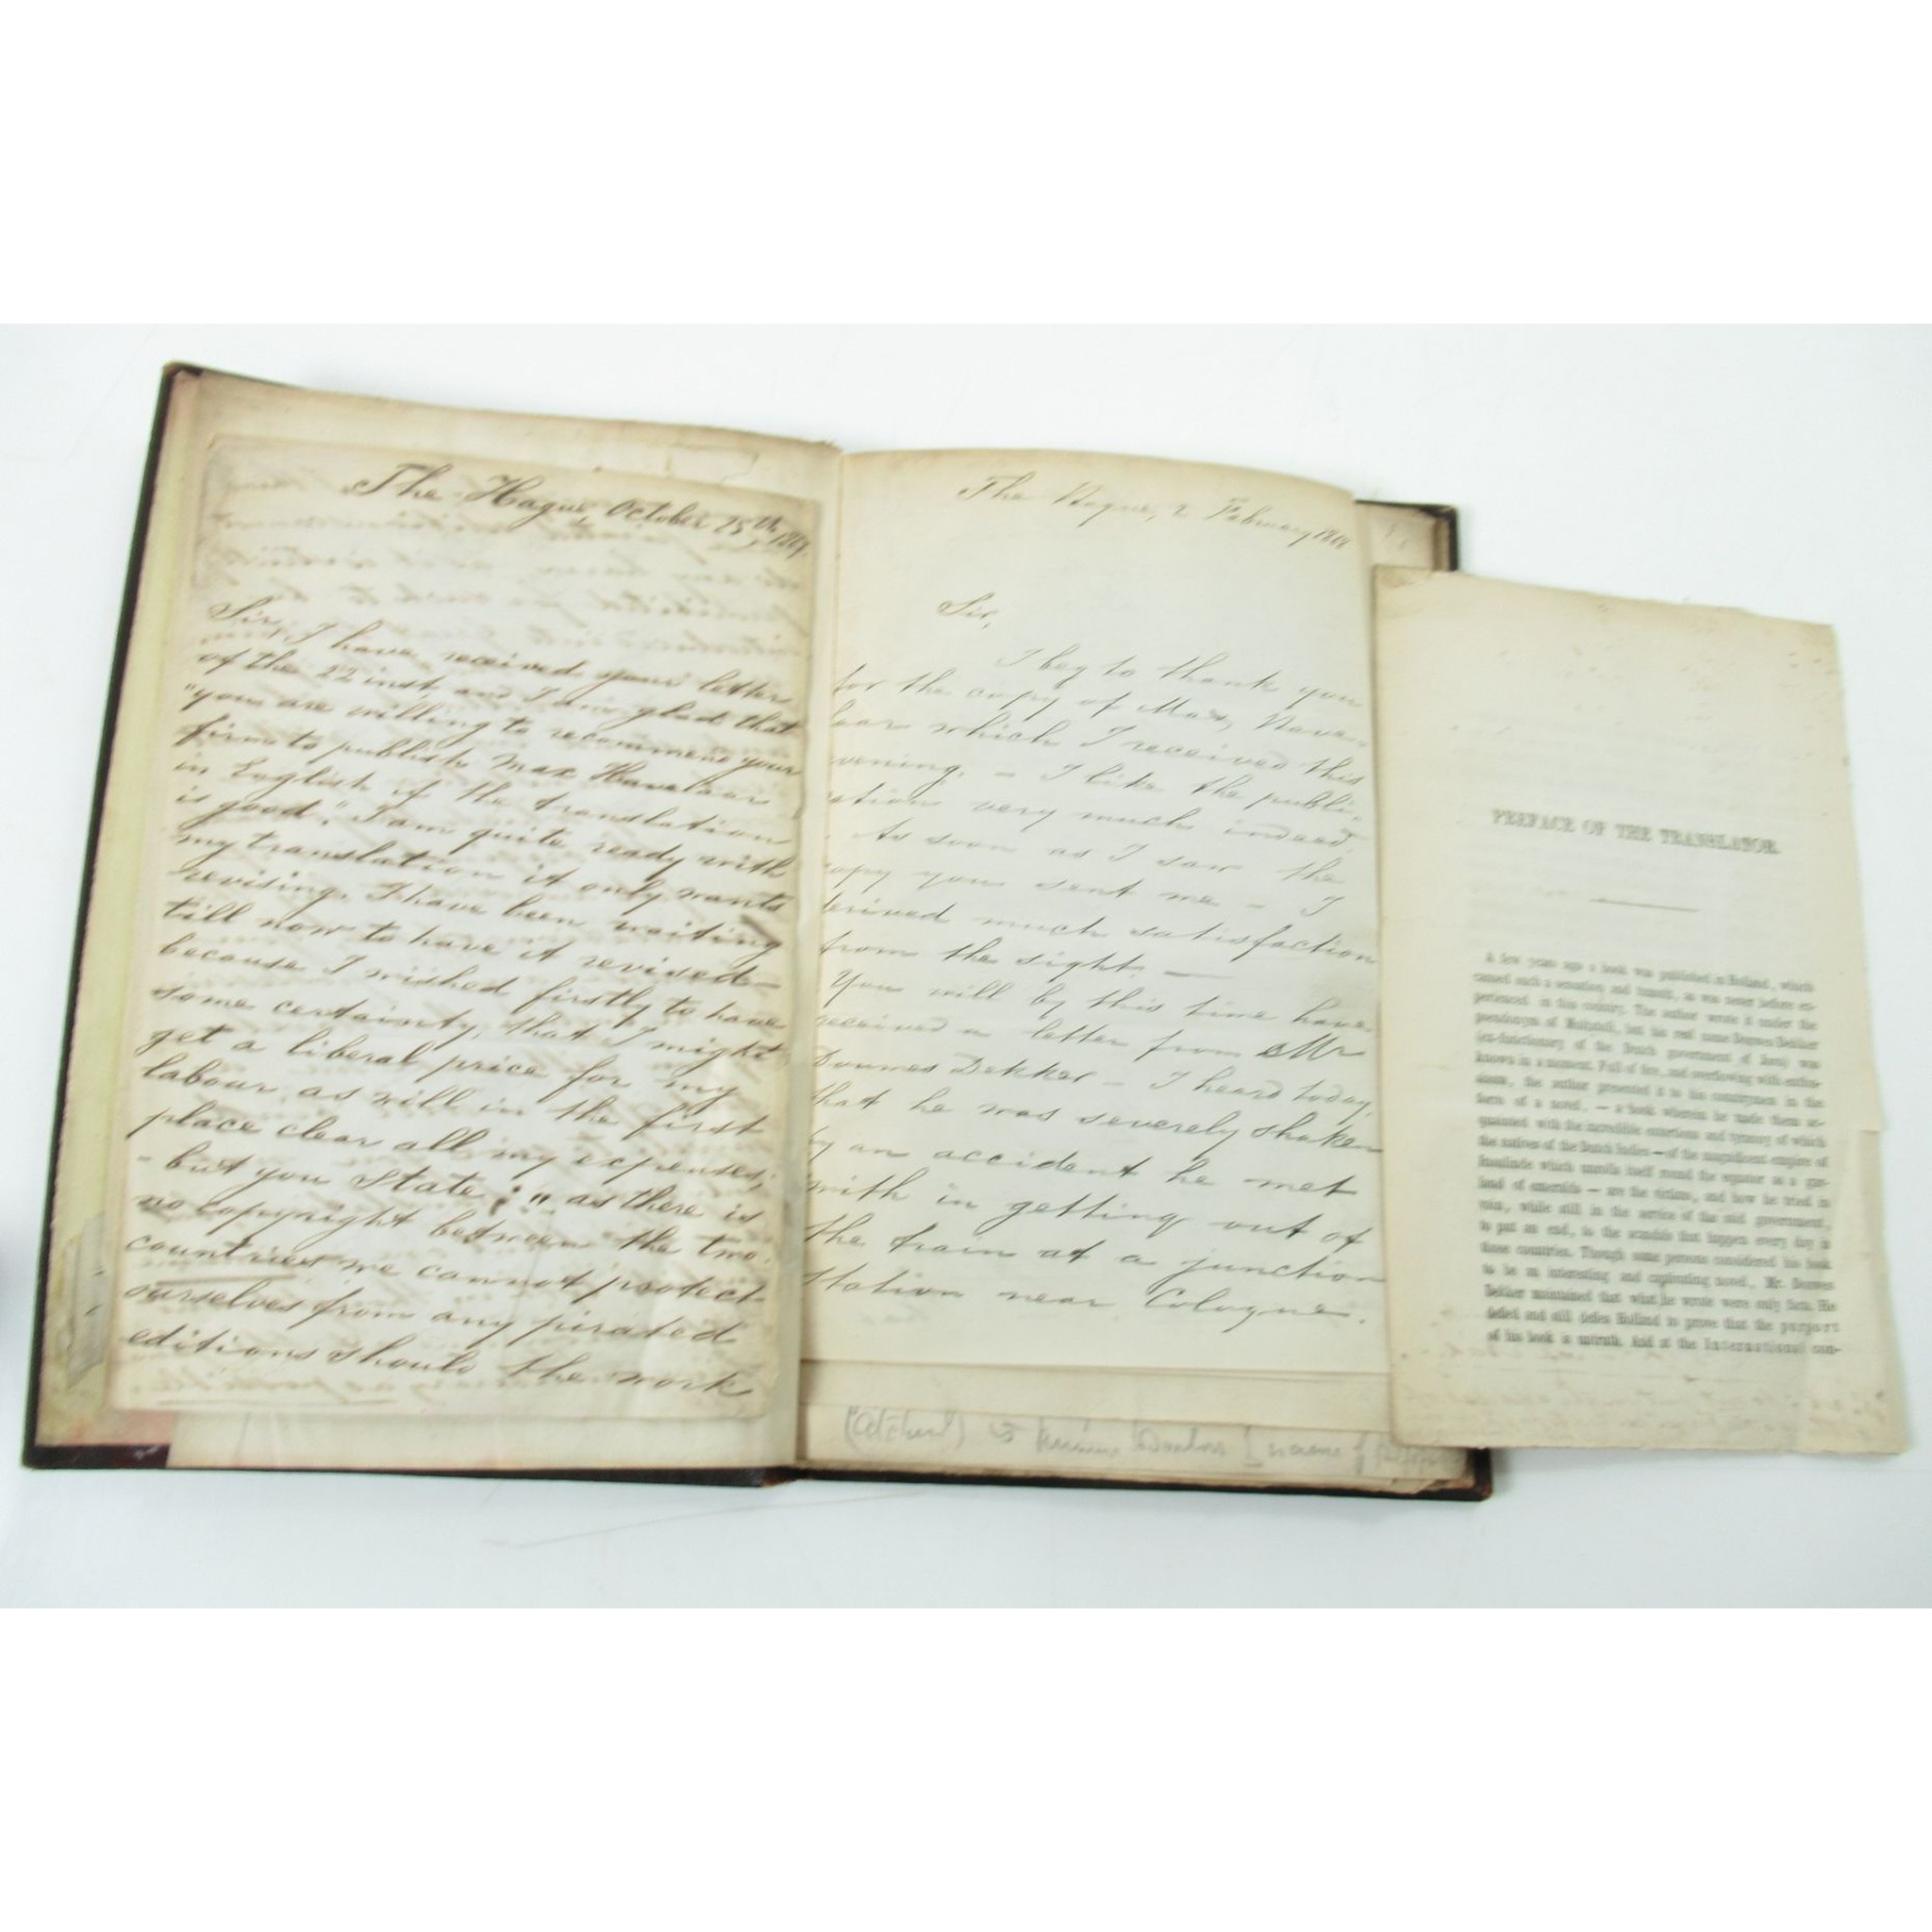 The Hague, October 25th, 1867.
Sir, I have received your letter
of the 22 inst. and I am glad that
"you are willing to recommend your
firm to publish Max Havelaar
in English if the translation
is good." I am quite ready with
my translation it only wants
revising. I have been waiting
till now to have it revised
because I wished firstly to have
some certainty, that I might
get a liberal price for my
labour, as will in the first
place clear all my expenses;
- but you state: "as there is
no copyright between the two
countries we cannot protect
ourselves from any pirated
editions should the work
The Hague, 2 February 1868
Sir,
I beg to thank you
for the copy of Max, Have-
laar which I received this
evening. - I like the publi-
cation very much indeed.
As soon as I saw the
copy you sent me - I
derived much satisfaction
from the sight. -
You will by this time have
received a letter from Mr
Douwes Dekker - I heard today,
that he was severely shaken
by an accident he met
with in getting out of
the train at a junction
station near Cologne.
PREFACE OF THE TRANSLATOR.
A few years ago a book was published in Holland, which
caused such a sensation and tumult, as was never before ex-
perienced in this country. The author wrote it under the
pseudonym of Multatuli, but his real name Douwes Dekker
(ex-functionary of the Dutch government of Java) was
known in a moment. Full of fire, and overflowing with enthu-
siasm, the author presented it to his countrymen in the
form of a novel, — a book wherein he made them ac-
quainted with the incredible extortions and tyranny of which
the natives of the Dutch Indies — of the magnificent empire of
Insulinde which unrolls itself round the equator as a gar-
land of emeralds — are the victims, and how he tried in
vain, while still in the service of the said government,
to put an end, to the scandals that happen every day in
those countries. Though some persons considered his book
to be an interesting and captivating novel, Mr. Douwes
Dekker maintained that what he wrote were only facts. He
defied and still defies Holland to prove that the purport
of his book is untruth. And at the International con-